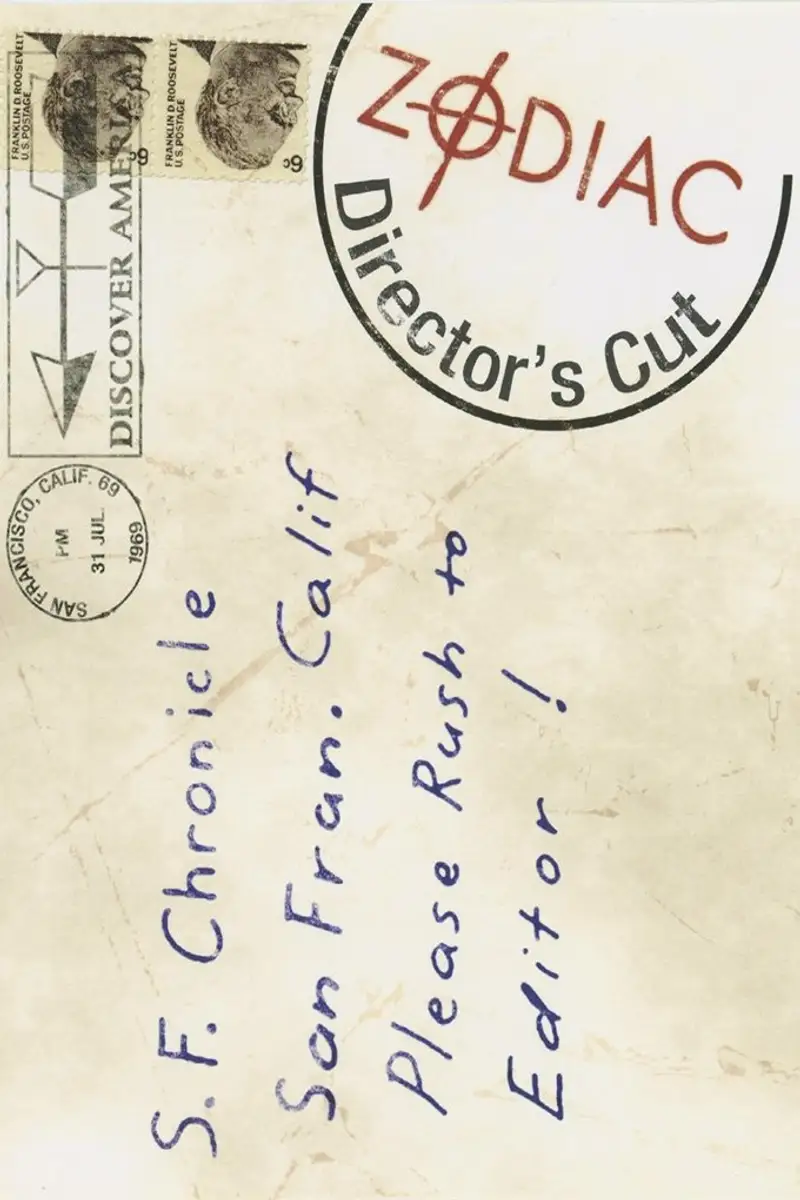 FRANKLIN D. ROOSEVELT
U.S. POSTAGE
6¢
FRANKLIN D. ROOSEVELT
U.S. POSTAGE
6¢
DISCOVER AMERICA
SAN FRANCISCO, CALIF. 69
PM
31 JUL
1969
ZODIAC
Director's Cut
S.F. Chronicle
San Fran. Calif
Please Rush to
Editor!